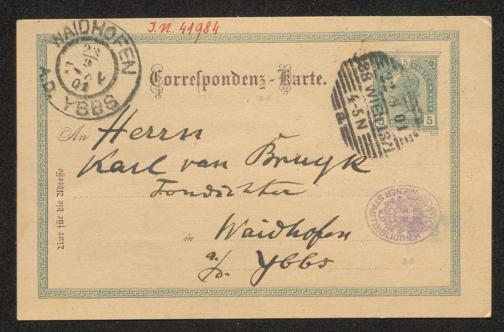 J.N. 41984
WAIDHOFEN
A.D. YBBS
Correspondenz-Karte.
5
WIEN
4-5N
An Herrn
Karl van Bruyk
Tondichter
in Waidhofen
a/d. Ybbs
Nur für die Adresse
WIENER STADTBIBLIOTHEK